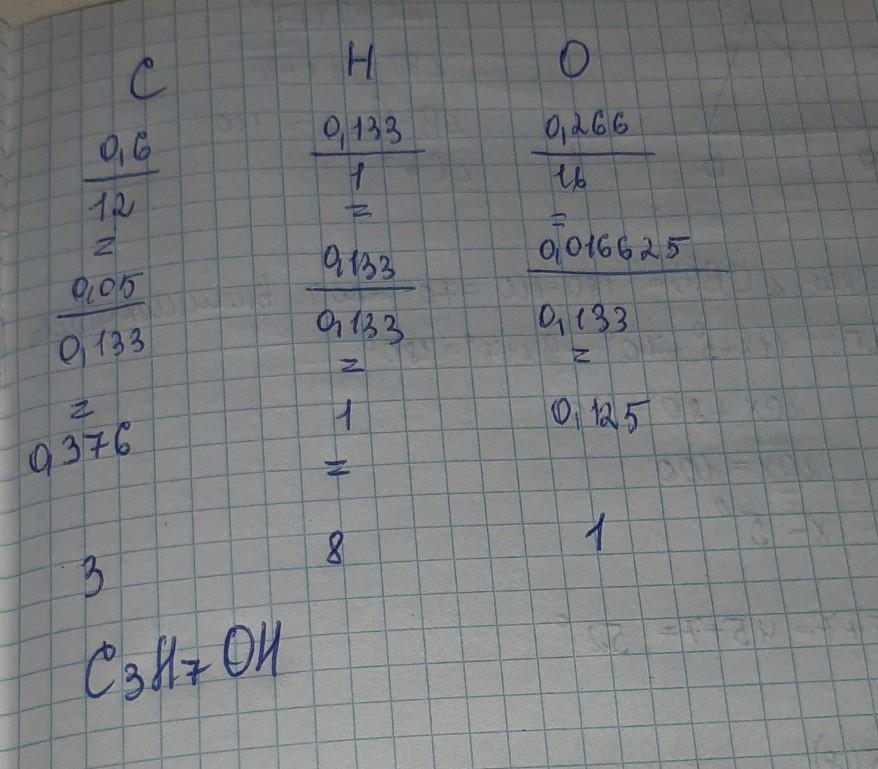 C H O
0,6 0,133 0,266
12 1 16
= = =
0,05 0,133 0,016625
0,133 0,133 0,133
= = =
0,376 1 0,125
=
3 8 1
C3H7OH